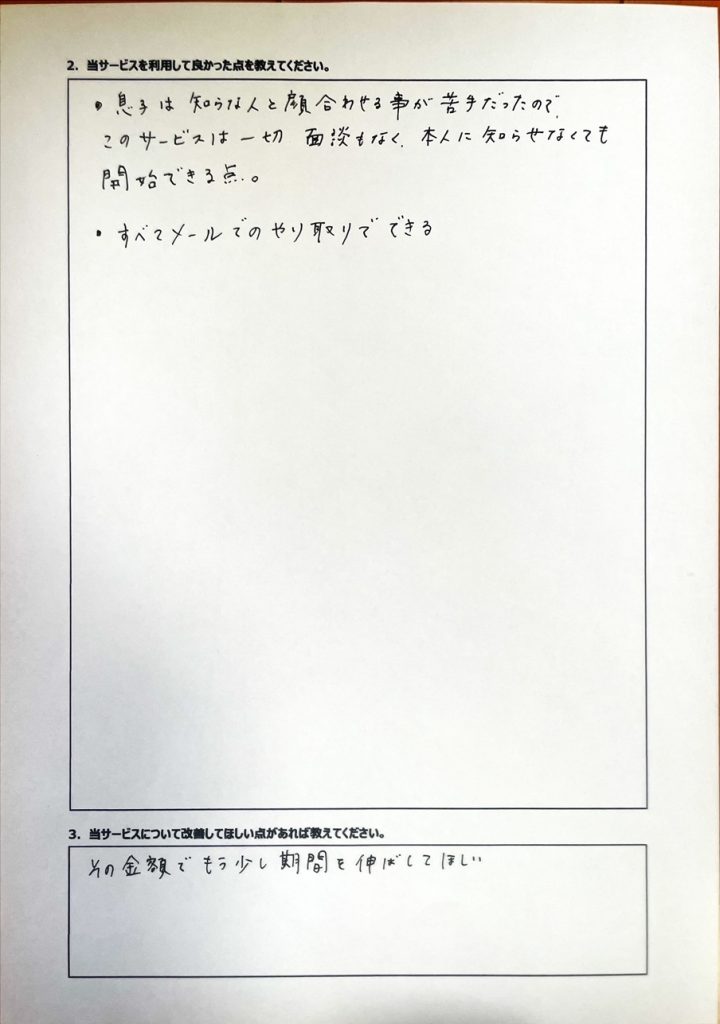 2. 当サービスを利用して良かった点を教えてください。
• 息子は 知らな人と顔合わせる事が苦手だったので、
このサービスは 一切 面談もなく、本人に知らせなくても
開始できる点。
• すべてメールでのやり取りで できる
3. 当サービスについて改善してほしい点があれば教えてください。
その金額で もう少し期間を伸ばしてほしい